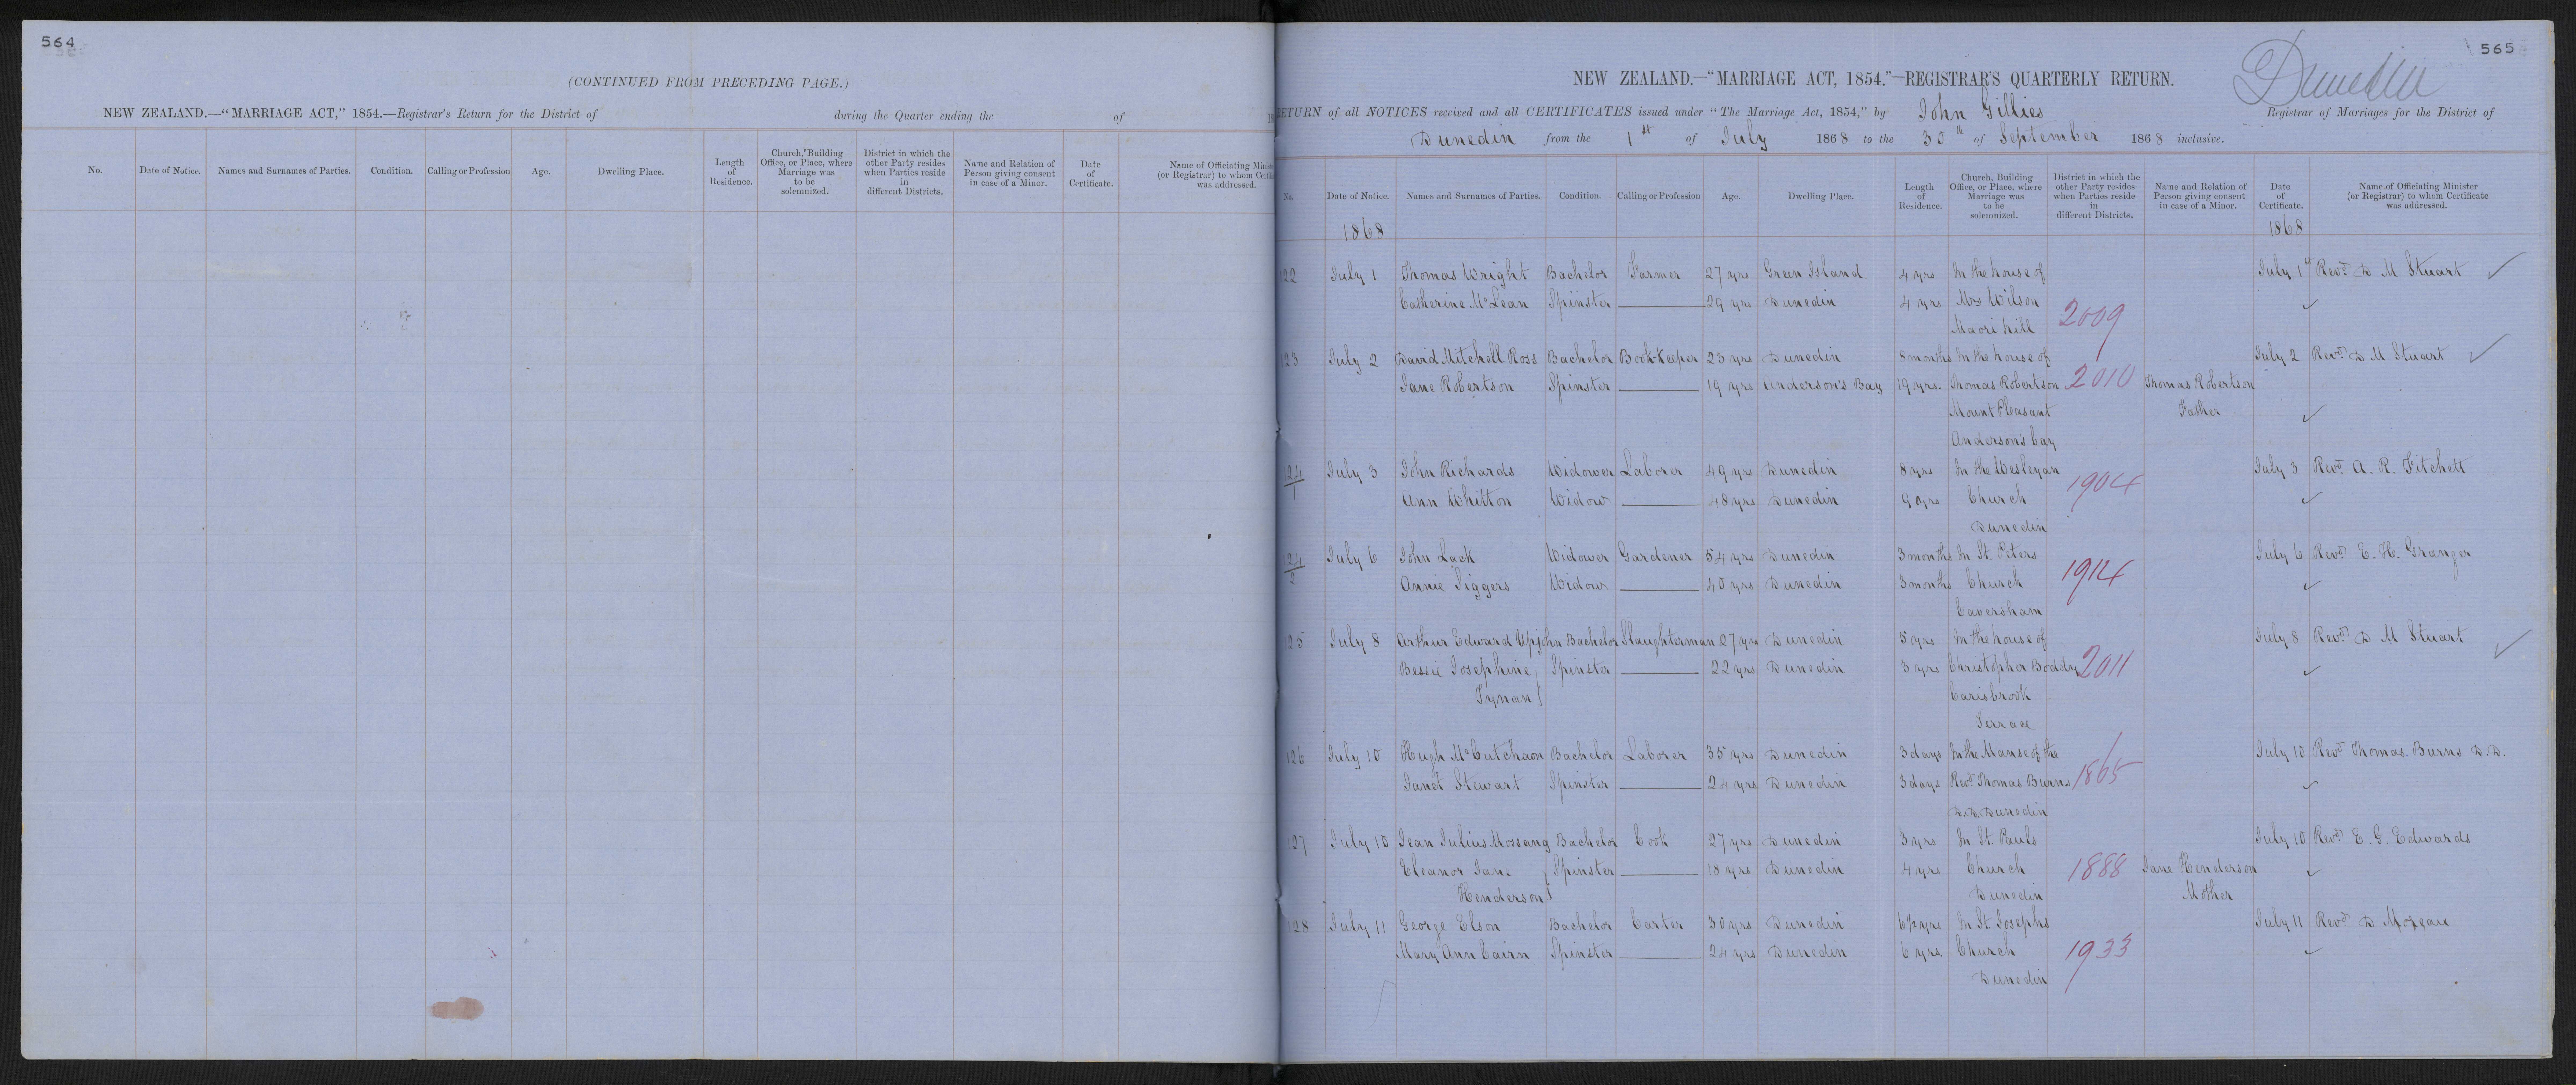 564
(CONTINUED FROM PRECEDING PAGE.)
NEW ZEALAND.—"MARRIAGE ACT," 1854.—Registrar's Return for the District of during the Quarter ending the of
No. Date of Notice. Names and Surnames of Parties. Condition. Calling or Profession Age. Dwelling Place. Length of Residence. Church, Building Office, or Place, where Marriage was to be solemnized. District in which the other Party resides when Parties reside in different Districts. Name and Relation of Person giving consent in case of a Minor. Date of Certificate. Name of Officiating (or Registrar) to whom was addressed.
565
Dunedin
NEW ZEALAND.—"MARRIAGE ACT, 1854."—REGISTRAR'S QUARTERLY RETURN.
RETURN of all NOTICES received and all CERTIFICATES issued under "The Marriage Act, 1854," by John Gillies Registrar of Marriages for the District of
Dunedin from the 1st of July 1868 to the 30th of September 1868 inclusive.
No. Date of Notice. Names and Surnames of Parties. Condition. Calling or Profession Age. Dwelling Place. Length of Residence. Church, Building Office, or Place, where Marriage was to be solemnized. District in which the other Party resides when Parties reside in different Districts. Name and Relation of Person giving consent in case of a Minor. Date of Certificate. Name of Officiating Minister (or Registrar) to whom Certificate was addressed.
1868 1868
22 July 1 Thomas Wright Bachelor Farmer 27 yrs Green Island 4 yrs In the house of July 1st Revd. D M Stuart
Catherine McLean Spinster 29 yrs Dunedin 4 yrs Mrs Wilson
Maori hill 2009
23 July 2 David Mitchell Ross Bachelor Book-Keeper 23 yrs Dunedin 8 months In the house of July 2 Revd. D M Stuart
Jane Robertson Spinster 19 yrs Anderson's Bay 19 yrs. Thomas Robertson 2010 Thomas Robertson
Mount Pleasant Father
Anderson's bay
24/1 July 3 John Richards Widower Laborer 49 yrs Dunedin 8 yrs In the Wesleyan 1904 July 3 Revd. A. R. Fitchett
Ann Whitton Widow 48 yrs Dunedin 9 yrs Church
Dunedin
24/2 July 6 John Lack Widower Gardener 54 yrs Dunedin 3 months In St. Peters July 6 Revd. E. H. Granger
Annie Siggers Widow 40 yrs Dunedin 3 months Church 1914
Caversham
125 July 8 Arthur Edward Upjohn Bachelor Slaughterman 27 yrs Dunedin 5 yrs In the house of July 8 Revd. D M Stuart
Bessie Josephine Spinster 22 yrs Dunedin 3 yrs Christopher Boddy 2011
Tynan Carisbrook
Terrace
126 July 10 Hugh McCutchaon Bachelor Laborer 35 yrs Dunedin 3 days In the Manse of the July 10 Revd. Thomas. Burns D.D.
Janet Stewart Spinster 24 yrs Dunedin 3 days Revd. Thomas Burns 1865
D.D. Dunedin
127 July 10 Jean Julius Mossang Bachelor Cook 27 yrs Dunedin 3 yrs In St. Pauls July 10 Revd. E. G. Edwards
Eleanor Jane Spinster 18 yrs Dunedin 4 yrs Church 1888 Jane Henderson
Henderson Dunedin Mother
128 July 11 George Elson Bachelor Carter 30 yrs Dunedin 6½ yrs In St. Josephs July 11 Revd. D Moreau
Mary Ann Cairn Spinster 24 yrs Dunedin 6 yrs Church 1933
Dunedin